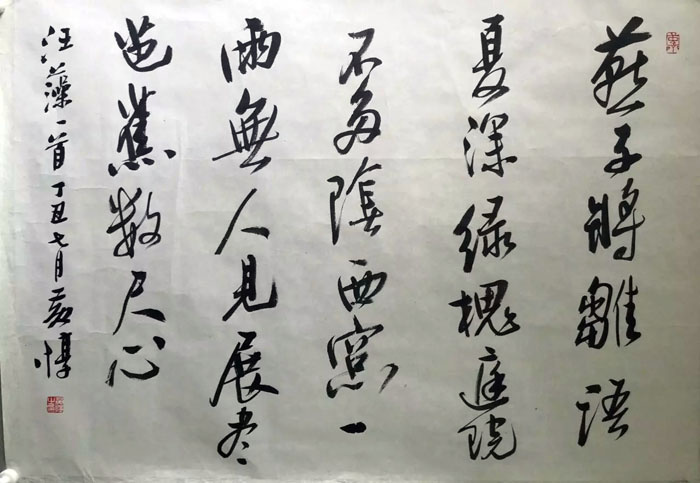 燕子將雛语
夏深绿槐庭院
不多陰西窗一
雨無人见展尽
芭蕉数尺心
汪藻一首丁丑七月黄惇